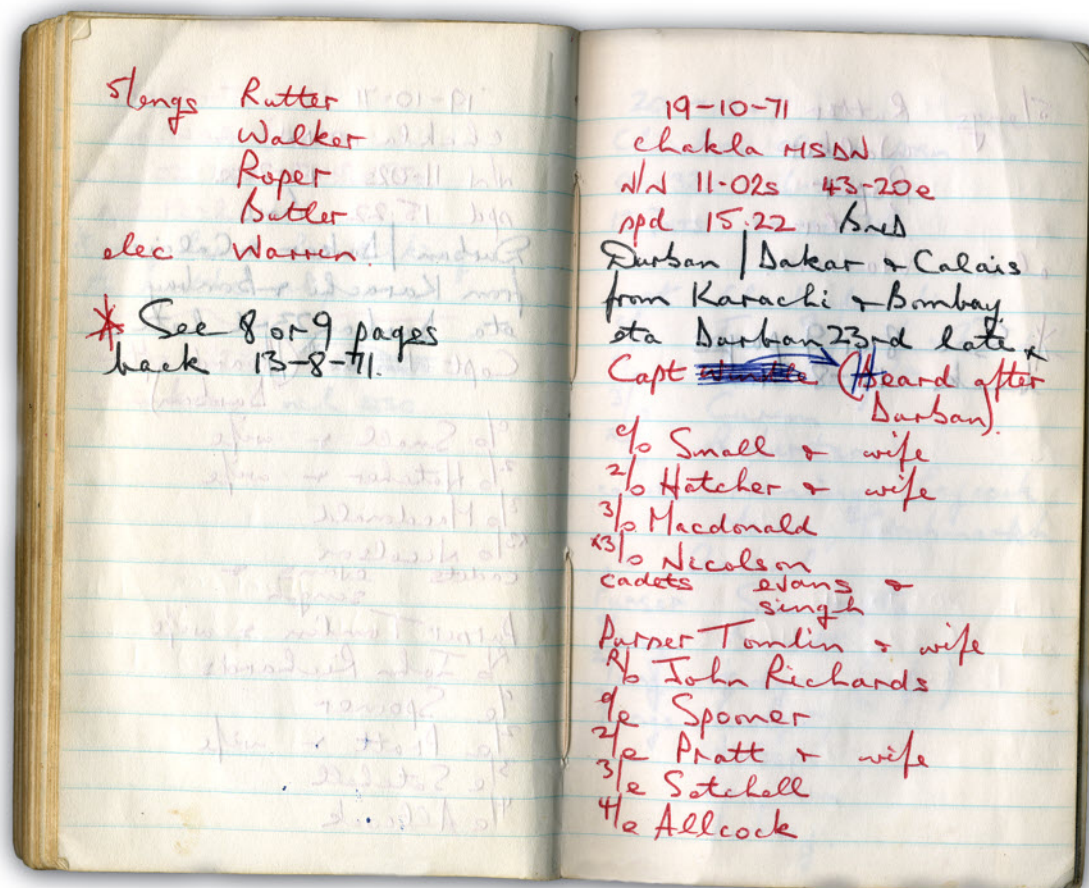 5/engs Rutter
Walker
Roper
Butler
elec Warren.
* See 8 or 9 pages
back 13-8-71.
19-10-71
chakla MSDN
N/N 11-02s 43-20e
spd 15.22 BND
Durban | Dakar & Calais
from Karachi & Bombay
eta Durban 23rd late x
Capt (Heard after
Durban).
c/o Small & wife
2/o Hatcher & wife
3/o Macdonald
x3/o Nicolson
cadets evans &
singh
Purser Tomlin & wife
R/o John Richards
c/e Spooner
2/e Pratt & wife
3/e Satchell
4/e Allcock